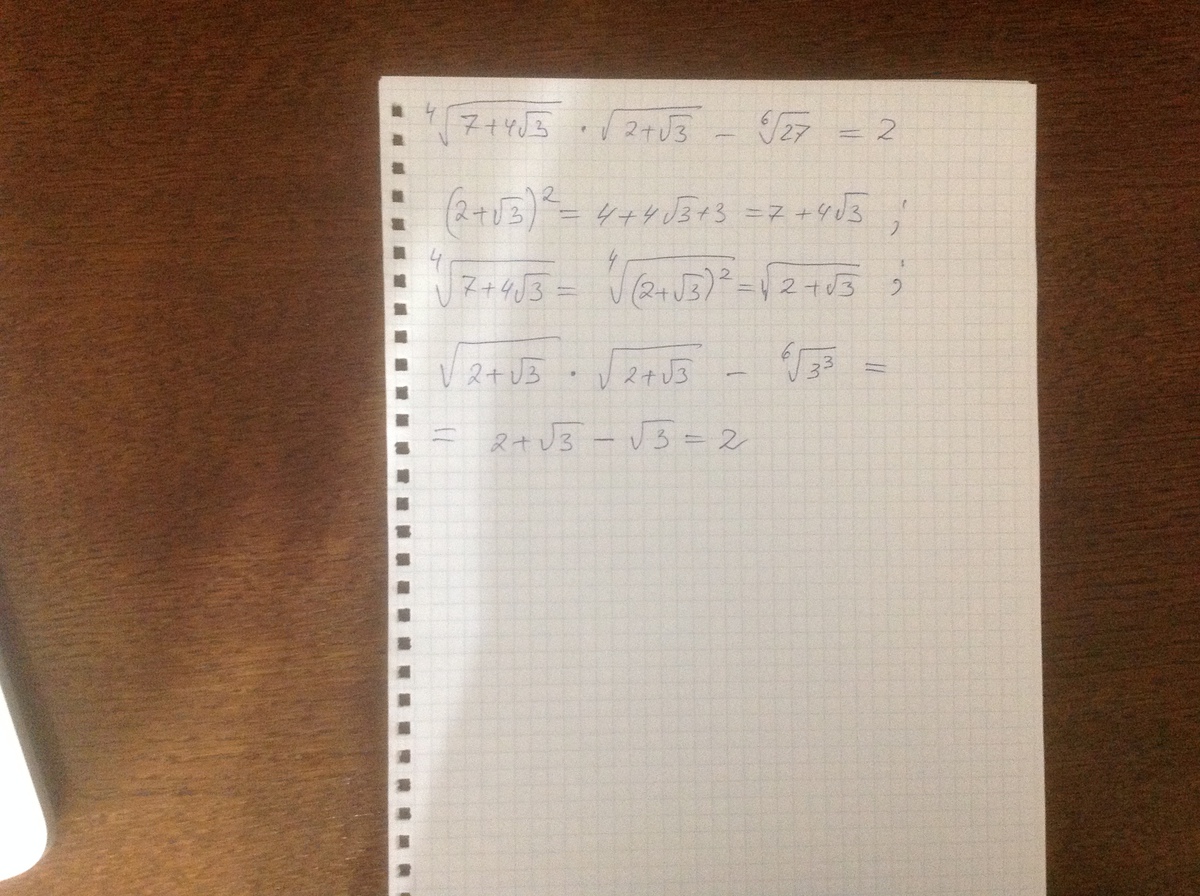 ⁴√(7+4√3) · √(2+√3) − ⁶√27 = 2
(2+√3)² = 4+4√3+3 = 7+4√3 ;
⁴√(7+4√3) = ⁴√((2+√3)²) = √(2+√3) ;
√(2+√3) · √(2+√3) − ⁶√(3³) =
= 2+√3 − √3 = 2